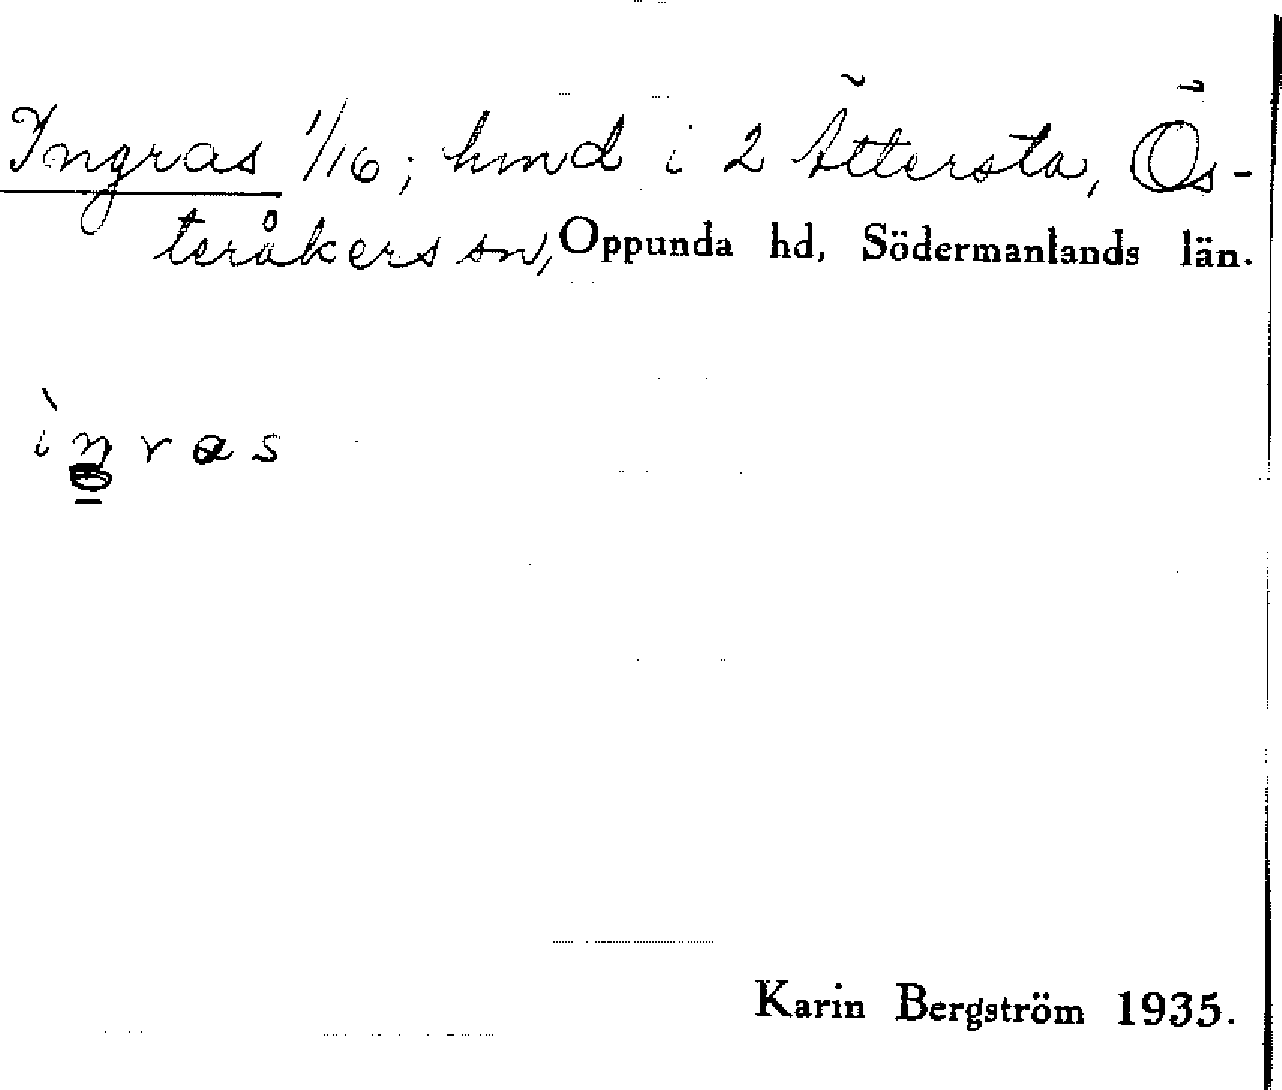 Ingras 1/16; hmd i 2 Ättersta, Ös-
teråkers sn, Oppunda hd, Södermanlands län.
ìŋras
Karin Bergström 1935.